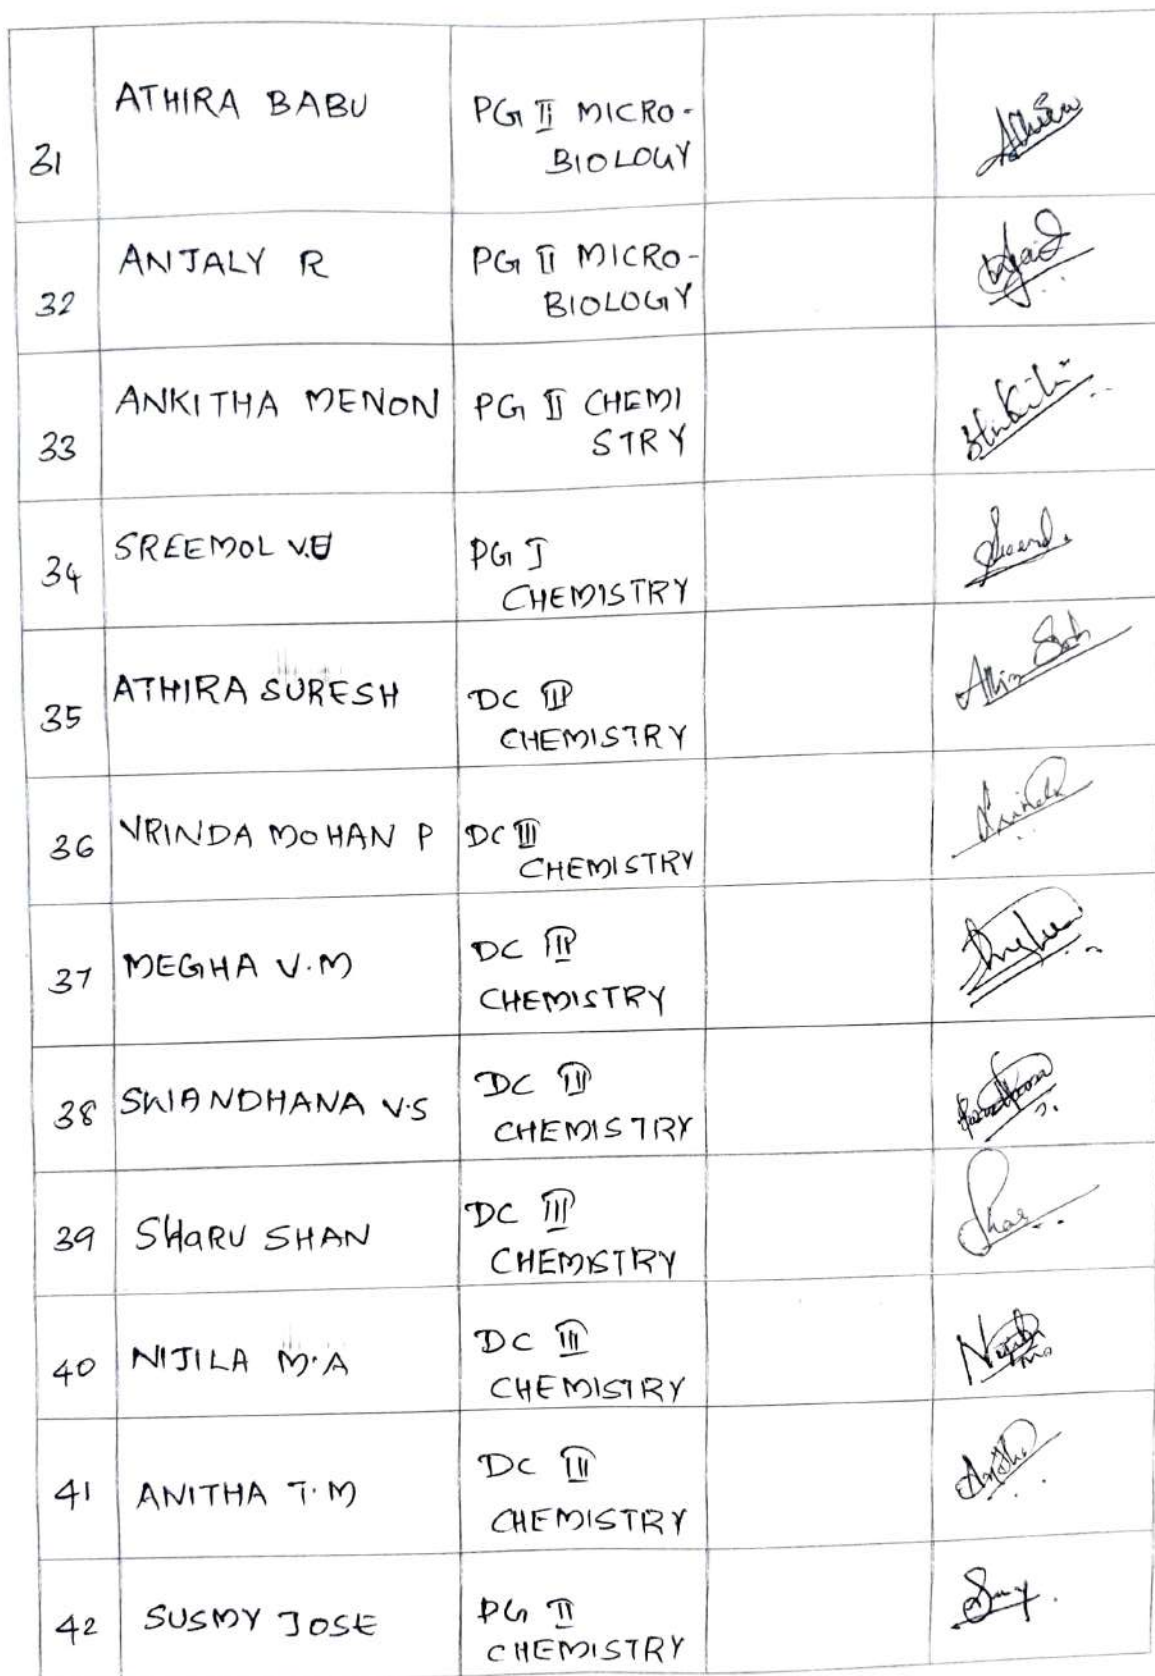 31 ATHIRA BABU PG II MICRO-
BIOLOGY
32 ANJALY R PG II MICRO-
BIOLOGY
33 ANKITHA MENON PG II CHEMI
STRY
34 SREEMOL V.U PG I
CHEMISTRY
35 ATHIRA SURESH DC III
CHEMISTRY
36 VRINDA MOHAN P DC III
CHEMISTRY
37 MEGHA V.M DC III
CHEMISTRY
38 V.S DC III
CHEMISTRY
39 SHARU SHAN DC III
CHEMISTRY
40 NIJILA M.A DC III
CHEMISTRY
41 ANITHA T.M DC III
CHEMISTRY
42 SUSMY JOSE PG II
CHEMISTRY